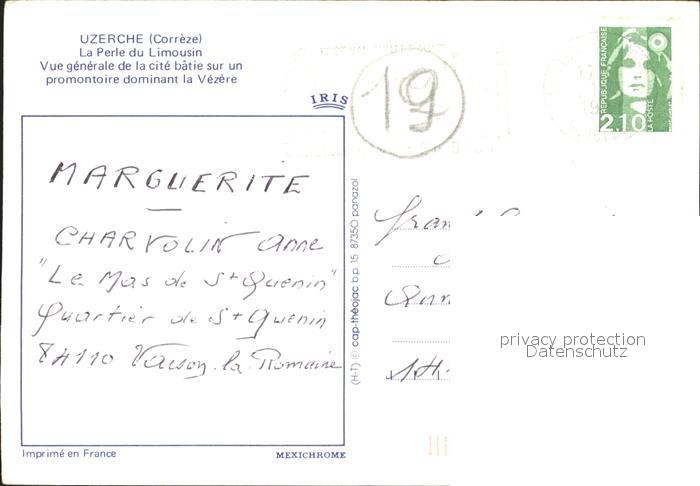 UZERCHE (Corrèze)
La Perle du Limousin
Vue générale de la cité bâtie sur un
promontoire dominant la Vézère
IRIS
19
RÉPUBLIQUE FRANÇAISE
2,10
LA POSTE
MARGUERITE
CHARVOLIN Anne
"Le Mas de St Quenin"
Quartier de St Quenin
84110 Vaison la Romaine
(H-T) © cap-théojac b.p. 15 87350 panazol
privacy protection
Datenschutz
Imprimé en France
MEXICHROME